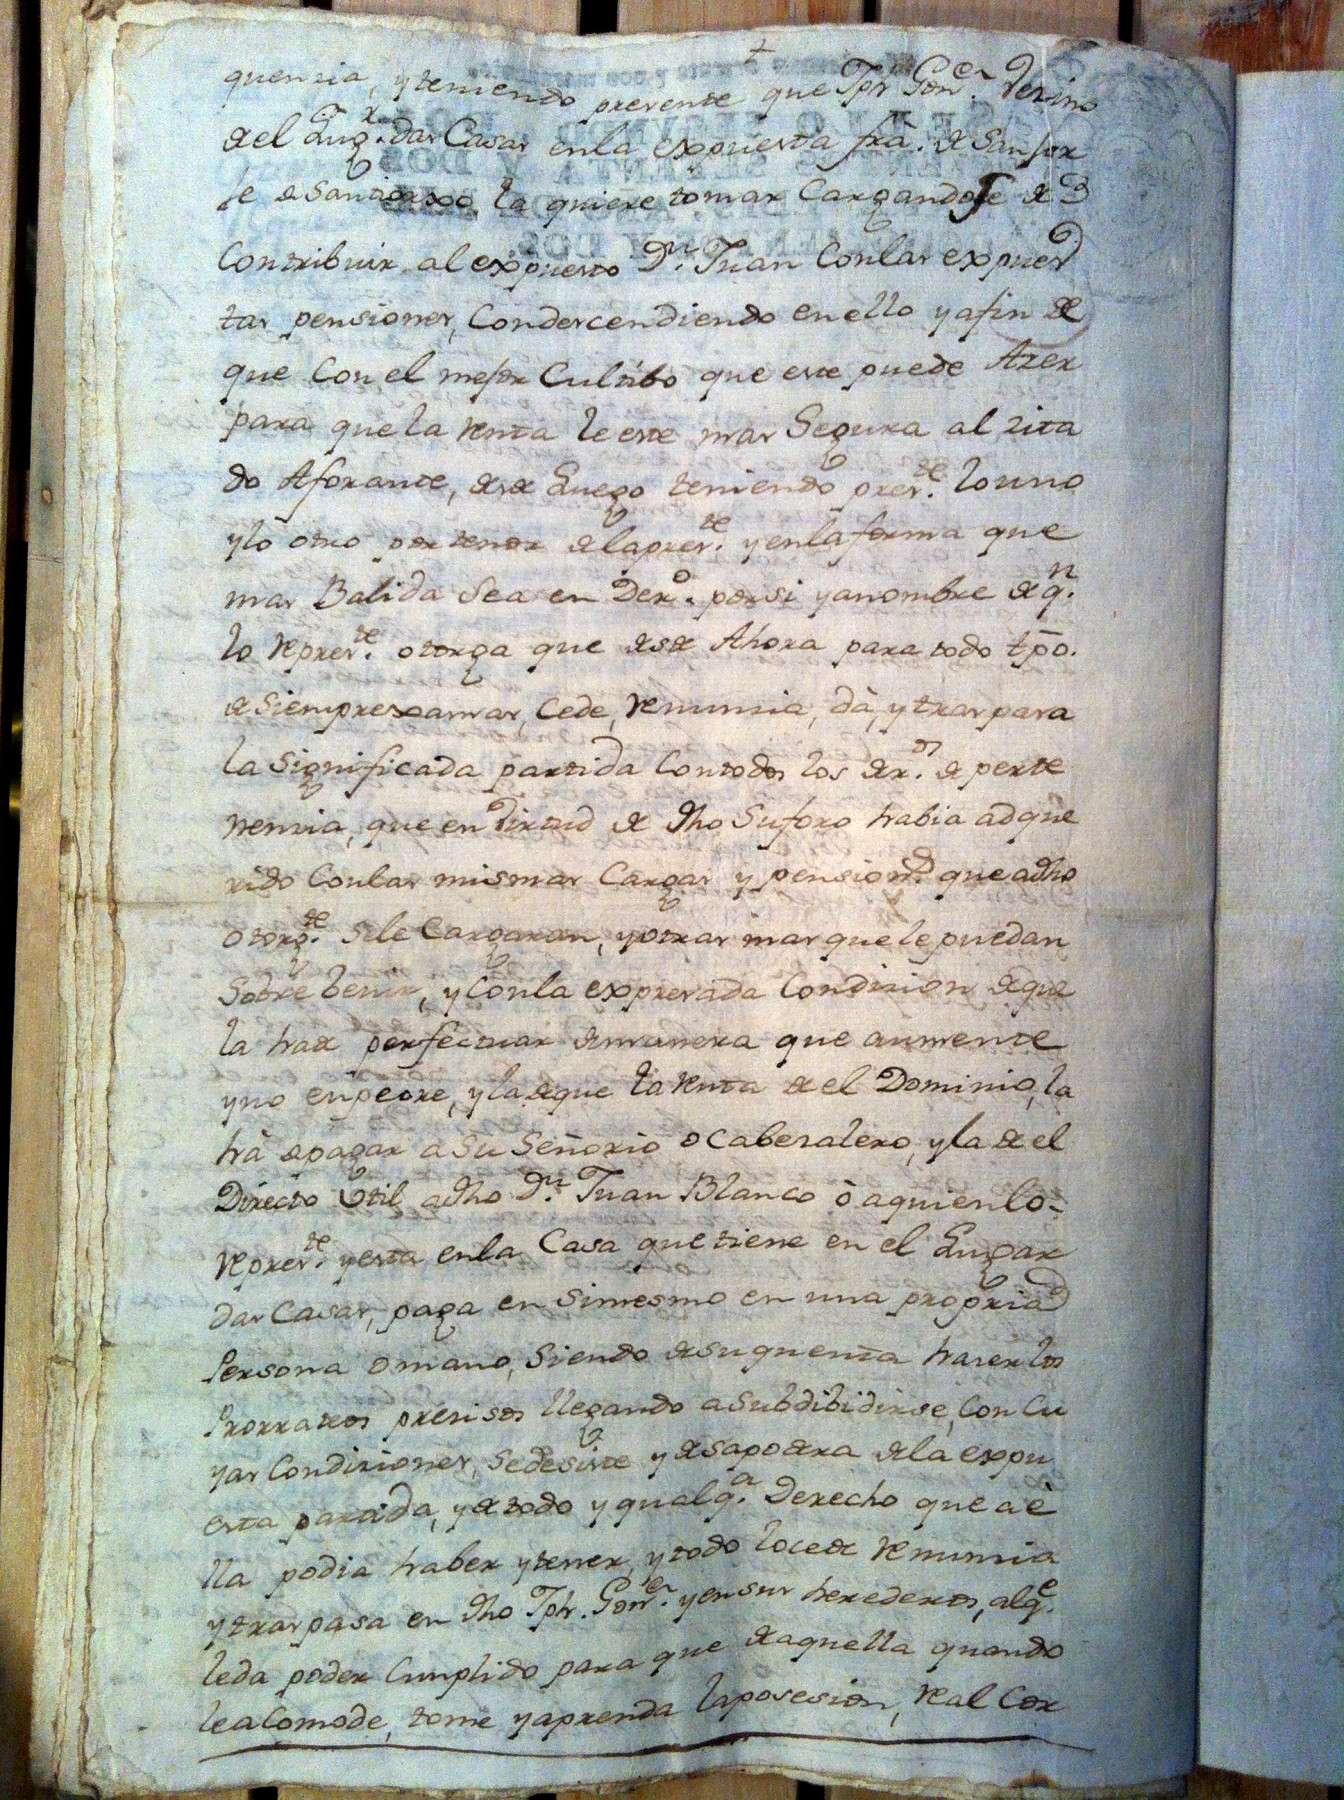 quencia, y teniendo presente que Jph Gonz.ez Vezino
del Lug.r das Casas en la expuesta fra. de San Jor
Je de Santiorxo, la quiere tomar Cargandose de
Contribuir al expuesto D.n Juan Con las expues
tas pensiones, Condescendiendo en ello y afin de
que Con el mejor Cultibo que este puede Azer
para que la renta le este mas Segura al zita
do Aforante, desde Luego teniendo pres.te lo uno
y lo otro por tenor de la pres.te y en la forma que
mas Balida Sea en Der.o por si y a nombre de q.n
lo repres.te otorga que desde Ahora para todo tpo.
de Siempre xamas, Cede, renuncia, dà, y traspasa
la Significada partida Con todos los dr.os de perte
nencia, que en Virtud de dho Su foro habia adque
rido Con las mismas Cargas y pension.s que a dho
otorg.te Se le Cargaron, y otras mas que le puedan
Sobrebenir, y Con la expresada Condizion de que
la ha de perfectuar de manera que aumente
y no enpeore, y la de que la renta de el Dominio, la
hà de pagar a Su Señorio o Cabezalero, y la de el
Directo Vtil a dho D.n Juan Blanco ò a quien lo
repres.te y esta en la Casa que tiene en el Lugar
das Casas, paga en Simesmo en una propria
Persona o mano, Siendo de su quenta hazer los
Prorrateos precisos llegando a Subdibidirse, Con Cu
yas Condiziones, Se desiste y desapodera de la expu
esta partida, y de todo y qualq.a Derecho que a è
lla podia haber y tener, y todo lo cede renuncia
y traspasa en dho Jph. Gonz.ez y en sus herederos, al q.e
le da poder Cumplido para que de aquella quando
le aComode, tome y aprenda la posesion, real Cor